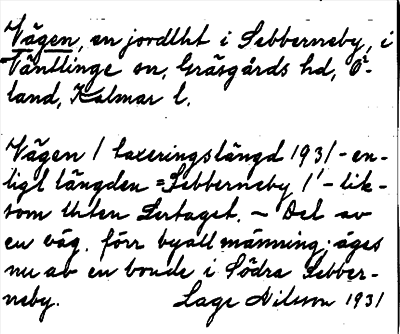 Vägen, en jordlht i Sebberneby, i
Ventlinge sn, Gräsgårds hd, Ö-
land, Kalmar l.
Vägen / taxeringslängd 1931 - en-
ligt längden = Sebberneby 1¹ - lik-
som Urten Sertaget. ~ Del av
en väg, förr byallmänning; äges
nu av en bonde i Södra Sebber-
neby. Lage Nilsson 1931